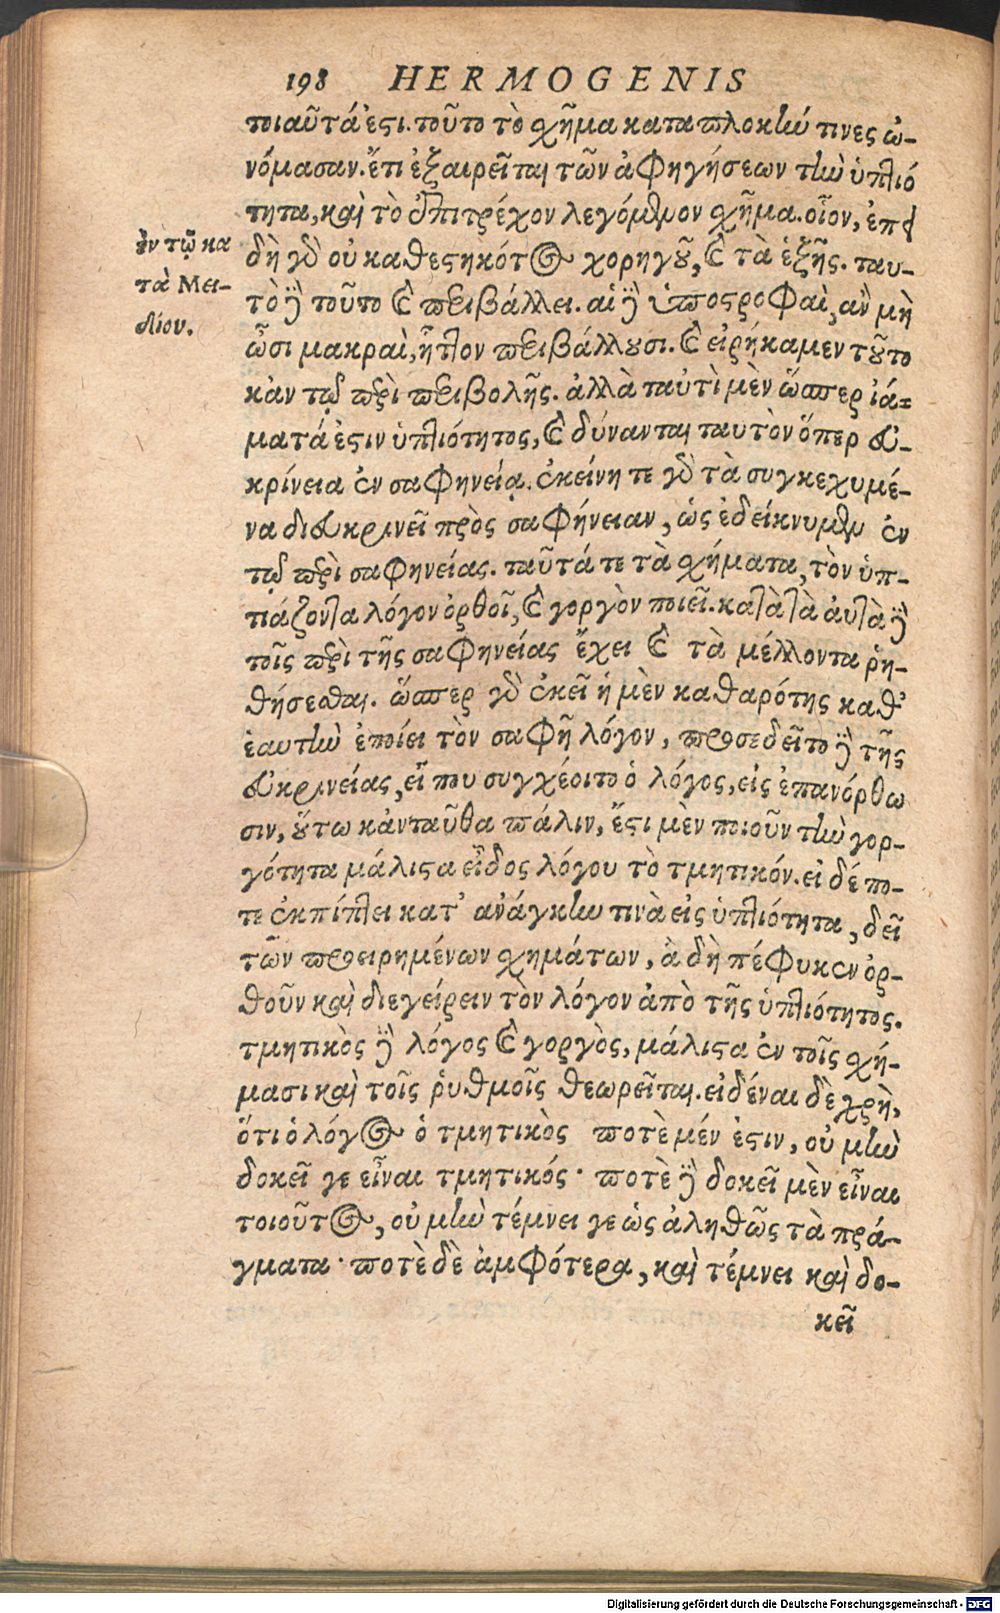 198 HERMOGENIS
τοιαῦτά ἐστι. τοῦτο τὸ σχῆμα καταπλοκὴν τινες ὠ-
νόμασαν. ἔτι ἐξαιρεῖται τῶν ἀφηγήσεων τὴν ὑπτιό
τητα, καὶ τὸ ἐπιτρέχον λεγόμενον σχῆμα. οἷον, ἐπει
δὴ γὰρ οὐ καθεστηκότος χορηγοῦ, καὶ τὰ ἑξῆς. ταυ-
τὸ δὲ τοῦτο καὶ περιβάλλει. αἱ δὲ ὑποστροφαὶ, ἂν μὴ
ὦσι μακραὶ, ἧττον περιβάλλουσι. καὶ εἰρήκαμεν τοῦτο
κἀν τῷ περὶ περιβολῆς. ἀλλὰ ταυτὶ μὲν ὥσπερ ἰά-
ματά ἐστιν ὑπτιότητος, καὶ δύνανται ταυτὸν ὅπερ εὐ-
κρίνεια ἐν σαφηνείᾳ. ἐκείνη τε γὰρ τὰ συγκεχυμέ-
να διευκρινεῖ πρὸς σαφήνειαν, ὡς ἐδείκνυμεν ἐν
τῷ περὶ σαφηνείας. ταῦτά τε τὰ σχήματα, τὸν ὑπ-
τιάζοντα λόγον ὀρθοῖ, καὶ γοργὸν ποιεῖ. κατὰ τὰ αὐτὰ δὲ
τοῖς περὶ τῆς σαφηνείας ἔχει καὶ τὰ μέλλοντα ῥη-
θήσεσθαι. ὥσπερ γὰρ ἐκεῖ ἡ μὲν καθαρότης καθ᾽
ἑαυτὴν ἐποίει τὸν σαφῆ λόγον, προσεδεῖτο δὲ τῆς
εὐκρινείας, εἴ που συγχέοιτο ὁ λόγος, εἰς ἐπανόρθω
σιν, οὕτω κἀνταῦθα πάλιν, ἔστι μὲν ποιοῦν τὴν γορ-
γότητα μάλιστα εἶδος λόγου τὸ τμητικόν. εἰ δέ πο-
τε ἐκπίπτει κατ᾽ ἀνάγκην τινὰ εἰς ὑπτιότητα, δεῖ
τῶν προειρημένων σχημάτων, ἃ δὴ πέφυκεν ὀρ-
θοῦν καὶ διεγείρειν τὸν λόγον ἀπὸ τῆς ὑπτιότητος.
τμητικὸς δὲ λόγος καὶ γοργὸς, μάλιστα ἐν τοῖς σχή-
μασι καὶ τοῖς ῥυθμοῖς θεωρεῖται. εἰδέναι δὲ χρὴ,
ὅτι ὁ λόγος ὁ τμητικὸς ποτὲ μέν ἐστιν, οὐ μὴν
δοκεῖ γε εἶναι τμητικός· ποτὲ δὲ δοκεῖ μὲν εἶναι
τοιοῦτος, οὐ μὴν τέμνει γε ὡς ἀληθῶς τὰ πρά-
γματα· ποτὲ δὲ ἀμφότερα, καὶ τέμνει καὶ δο-
κεῖ
ἐν τῷ κα
τὰ Μει-
δίου.
Digitalisierung gefördert durch die Deutsche Forschungsgemeinschaft - DFG